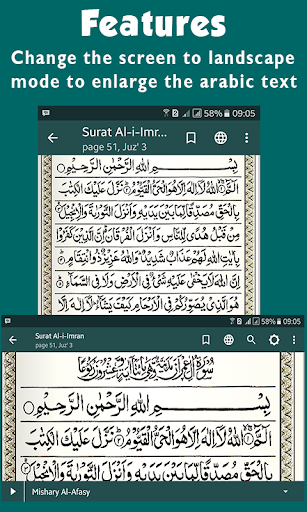 Features
Change the screen to landscape
mode to enlarge the arabic text
58% 09:05
Surat Al-i-Imr...
page 51, Juz' 3
بِسْمِ اللهِ الرَّحْمٰنِ الرَّحِيْمِ
الٓمّٓ ۝ اللهُ لَآ اِلٰهَ اِلَّا هُوَ الْحَيُّ الْقَيُّوْمُ ۝ نَزَّلَ عَلَيْكَ الْكِتٰبَ
بِالْحَقِّ مُصَدِّقًا لِّمَا بَيْنَ يَدَيْهِ وَاَنْزَلَ التَّوْرٰىةَ وَالْاِنْجِيْلَ ۝
مِنْ قَبْلُ هُدًى لِّلنَّاسِ وَاَنْزَلَ الْفُرْقَانَ ەۗ اِنَّ الَّذِيْنَ كَفَرُوْا
بِاٰيٰتِ اللهِ لَهُمْ عَذَابٌ شَدِيْدٌ ۗ وَاللهُ عَزِيْزٌ ذُو انْتِقَامٍ ۝
اِنَّ اللهَ لَا يَخْفٰى عَلَيْهِ شَيْءٌ فِى الْاَرْضِ وَلَا فِى السَّمَاۤءِ ۝
هُوَ الَّذِيْ يُصَوِّرُكُمْ فِى الْاَرْحَامِ كَيْفَ يَشَاۤءُ ۗ لَآ اِلٰهَ اِلَّا
58% 09:05
Surat Al-i-Imran
page 51, Juz' 3
بِسْمِ اللهِ الرَّحْمٰنِ الرَّحِيْمِ
الٓمّٓ ۝ اللهُ لَآ اِلٰهَ اِلَّا هُوَ الْحَيُّ الْقَيُّوْمُ ۝ نَزَّلَ عَلَيْكَ الْكِتٰبَ
بِالْحَقِّ مُصَدِّقًا لِّمَا بَيْنَ يَدَيْهِ وَاَنْزَلَ التَّوْرٰىةَ وَالْاِنْجِيْلَ
Mishary Al-Afasy